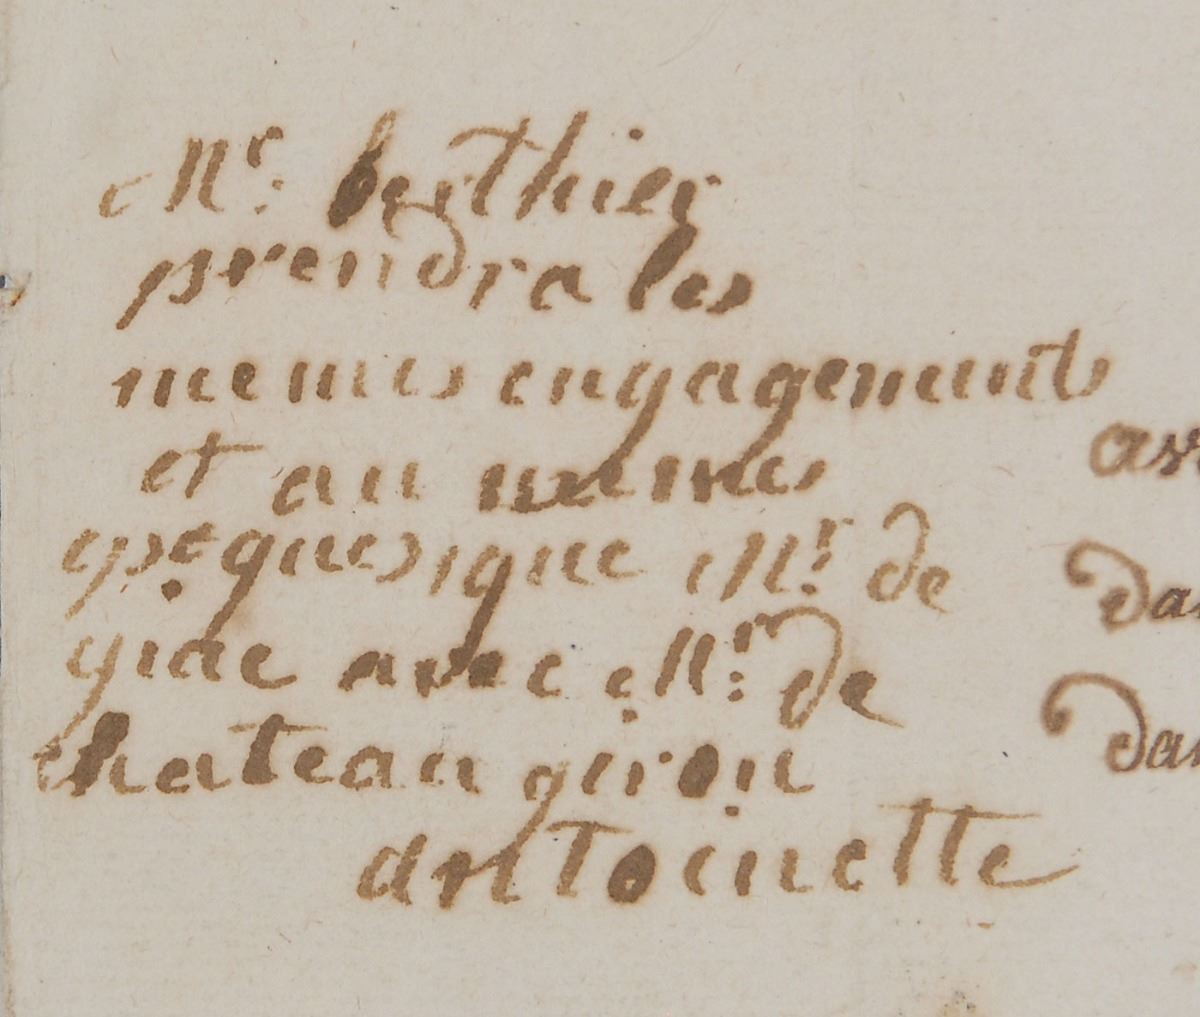 Mr. berthier
prendra les
memes engagements
et au memes
que Mr. de
giac avec Mr. de
chateau giron
antoinette
da